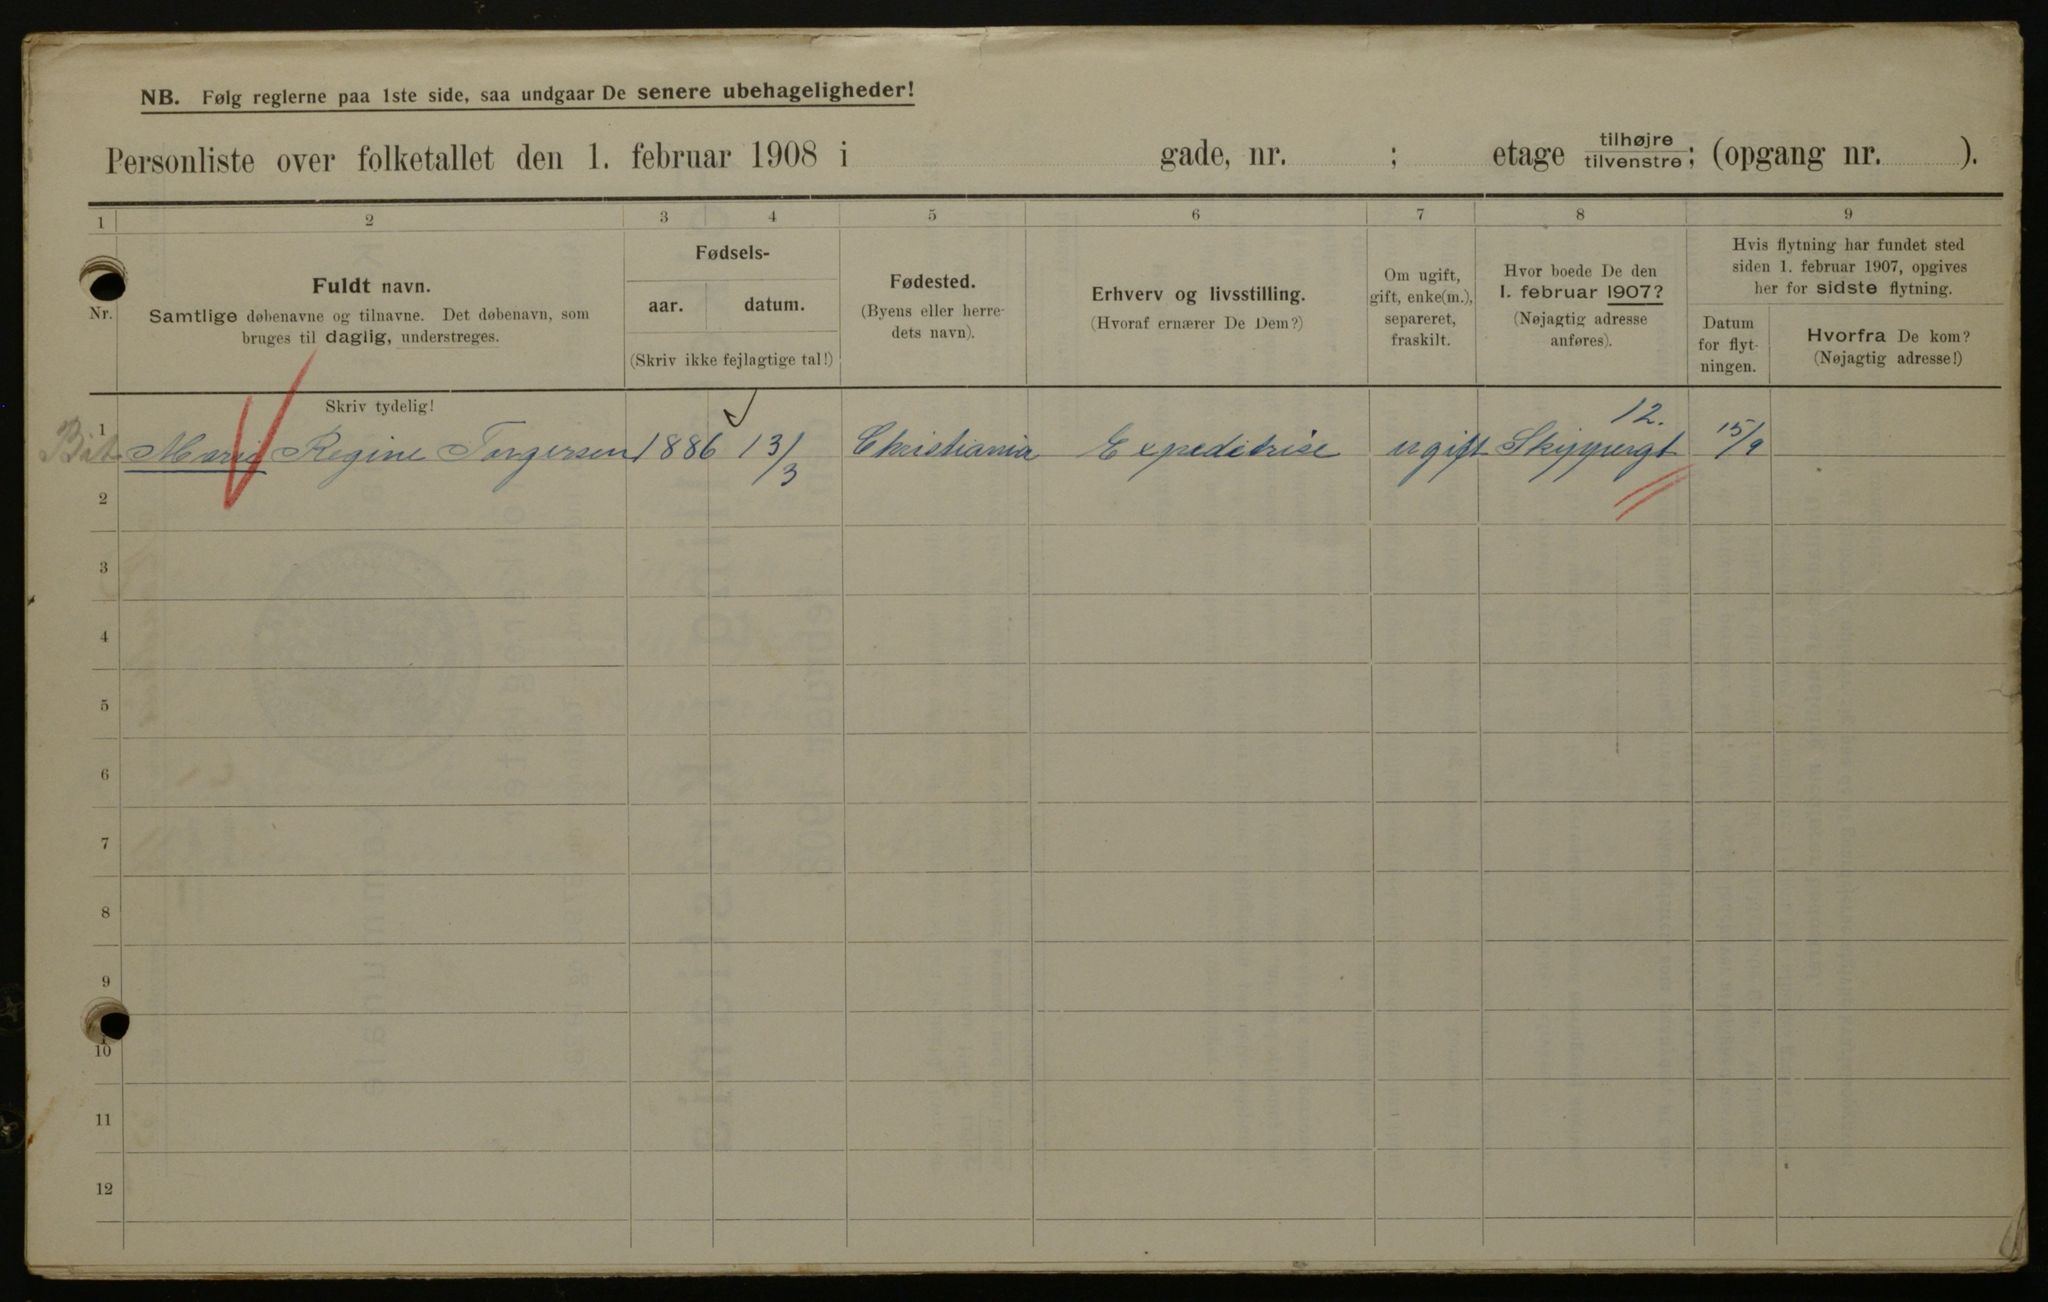 NB. Følg reglerne paa 1ste side, saa undgaar De senere ubehageligheder!
Personliste over folketallet den 1. februar 1908 i gade, nr. ; etage tilhøjre tilvenstre; (opgang nr. ).
1 2 3 4 5 6 7 8 9
Nr.
Fuldt navn.
Samtlige døbenavne og tilnavne. Det døbenavn, som
bruges til daglig, understreges.
Fødsels-
aar. datum.
(Skriv ikke fejlagtige tal!)
Fødested.
(Byens eller herre-
dets navn).
Erhverv og livsstilling.
(Hvoraf ernærer De Dem?)
Om ugift,
gift, enke(m.),
separeret,
fraskilt.
Hvor boede De den
1. februar 1907?
(Nøjagtig adresse
anføres).
Hvis flytning har fundet sted
siden 1. februar 1907, opgives
her for sidste flytning.
Datum
for flyt-
ningen.
Hvorfra De kom?
(Nøjagtig adresse!)
Skriv tydelig!
12.
1 Marie Regine Torgersen 1886 13/3 Christiania Expeditrise ugift Skippergt 15/9
2
3
4
5
6
7
8
9
10
11
12